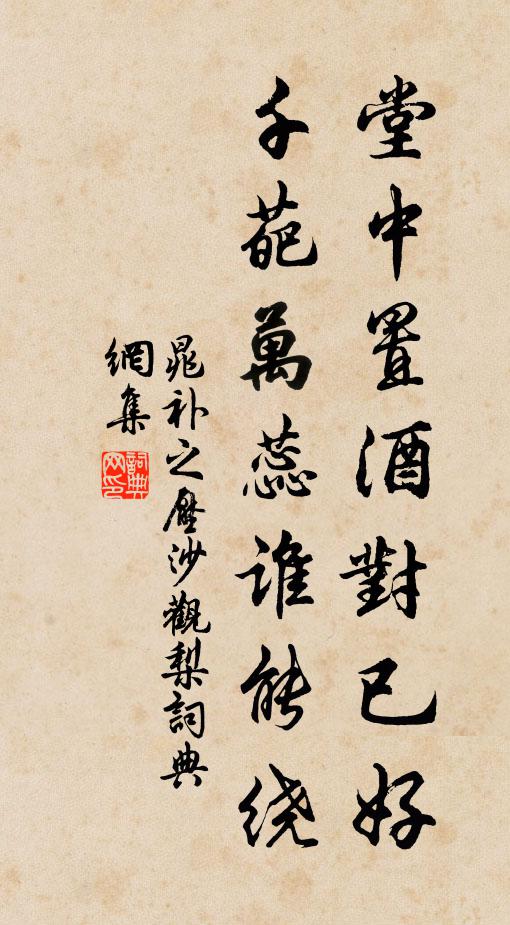 堂中置酒對已好
千葩萬蕊谁能绕
晁补之壓沙觀梨詞典
網集
詞典網印